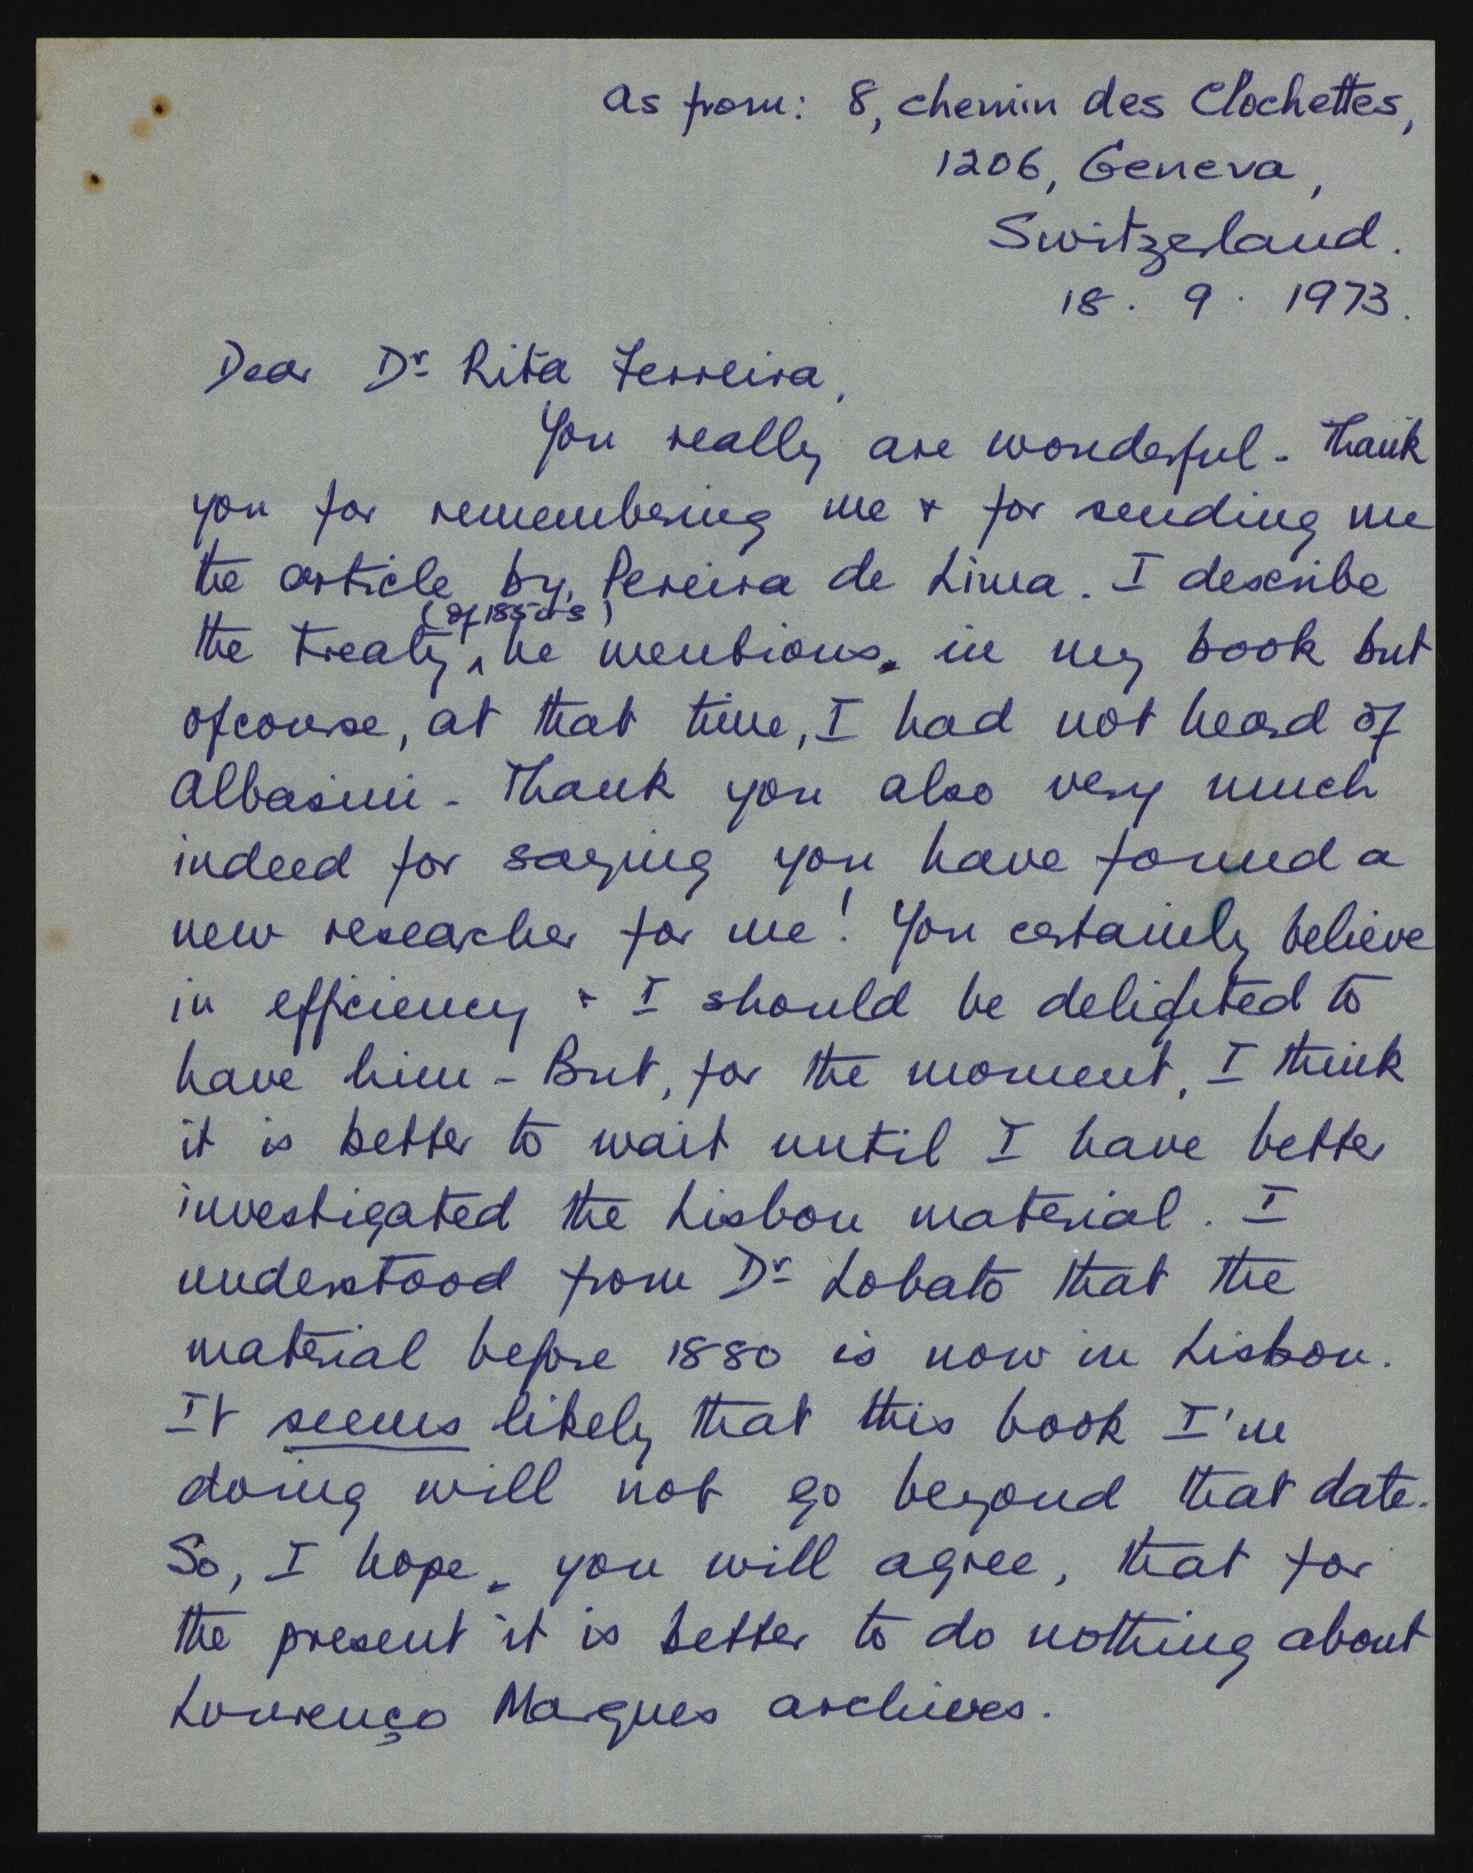 As from: 8, chemin des Clochettes,
1206, Geneva,
Switzerland.
18. 9. 1973.
Dear Dr Rita Ferreira,
You really are wonderful. Thank
you for remembering me & for sending me
the article by Pereira de Lima. I describe
(of
the treaty he mentions in my book but
ofcourse, at that time, I had not heard of
Albasini. Thank you also very much
indeed for saying you have found a
new researcher for me! You certainly believe
in efficiency & I should be delighted to
have him - But, for the moment, I think
it is better to wait until I have better
investigated the Lisbon material. I
understood from Dr Lobato that the
material before 1880 is now in Lisbon.
It seems likely that this book I'm
doing will not go beyond that date.
So, I hope, you will agree, that for
the present it is better to do nothing about
Lourenço Marques archives.